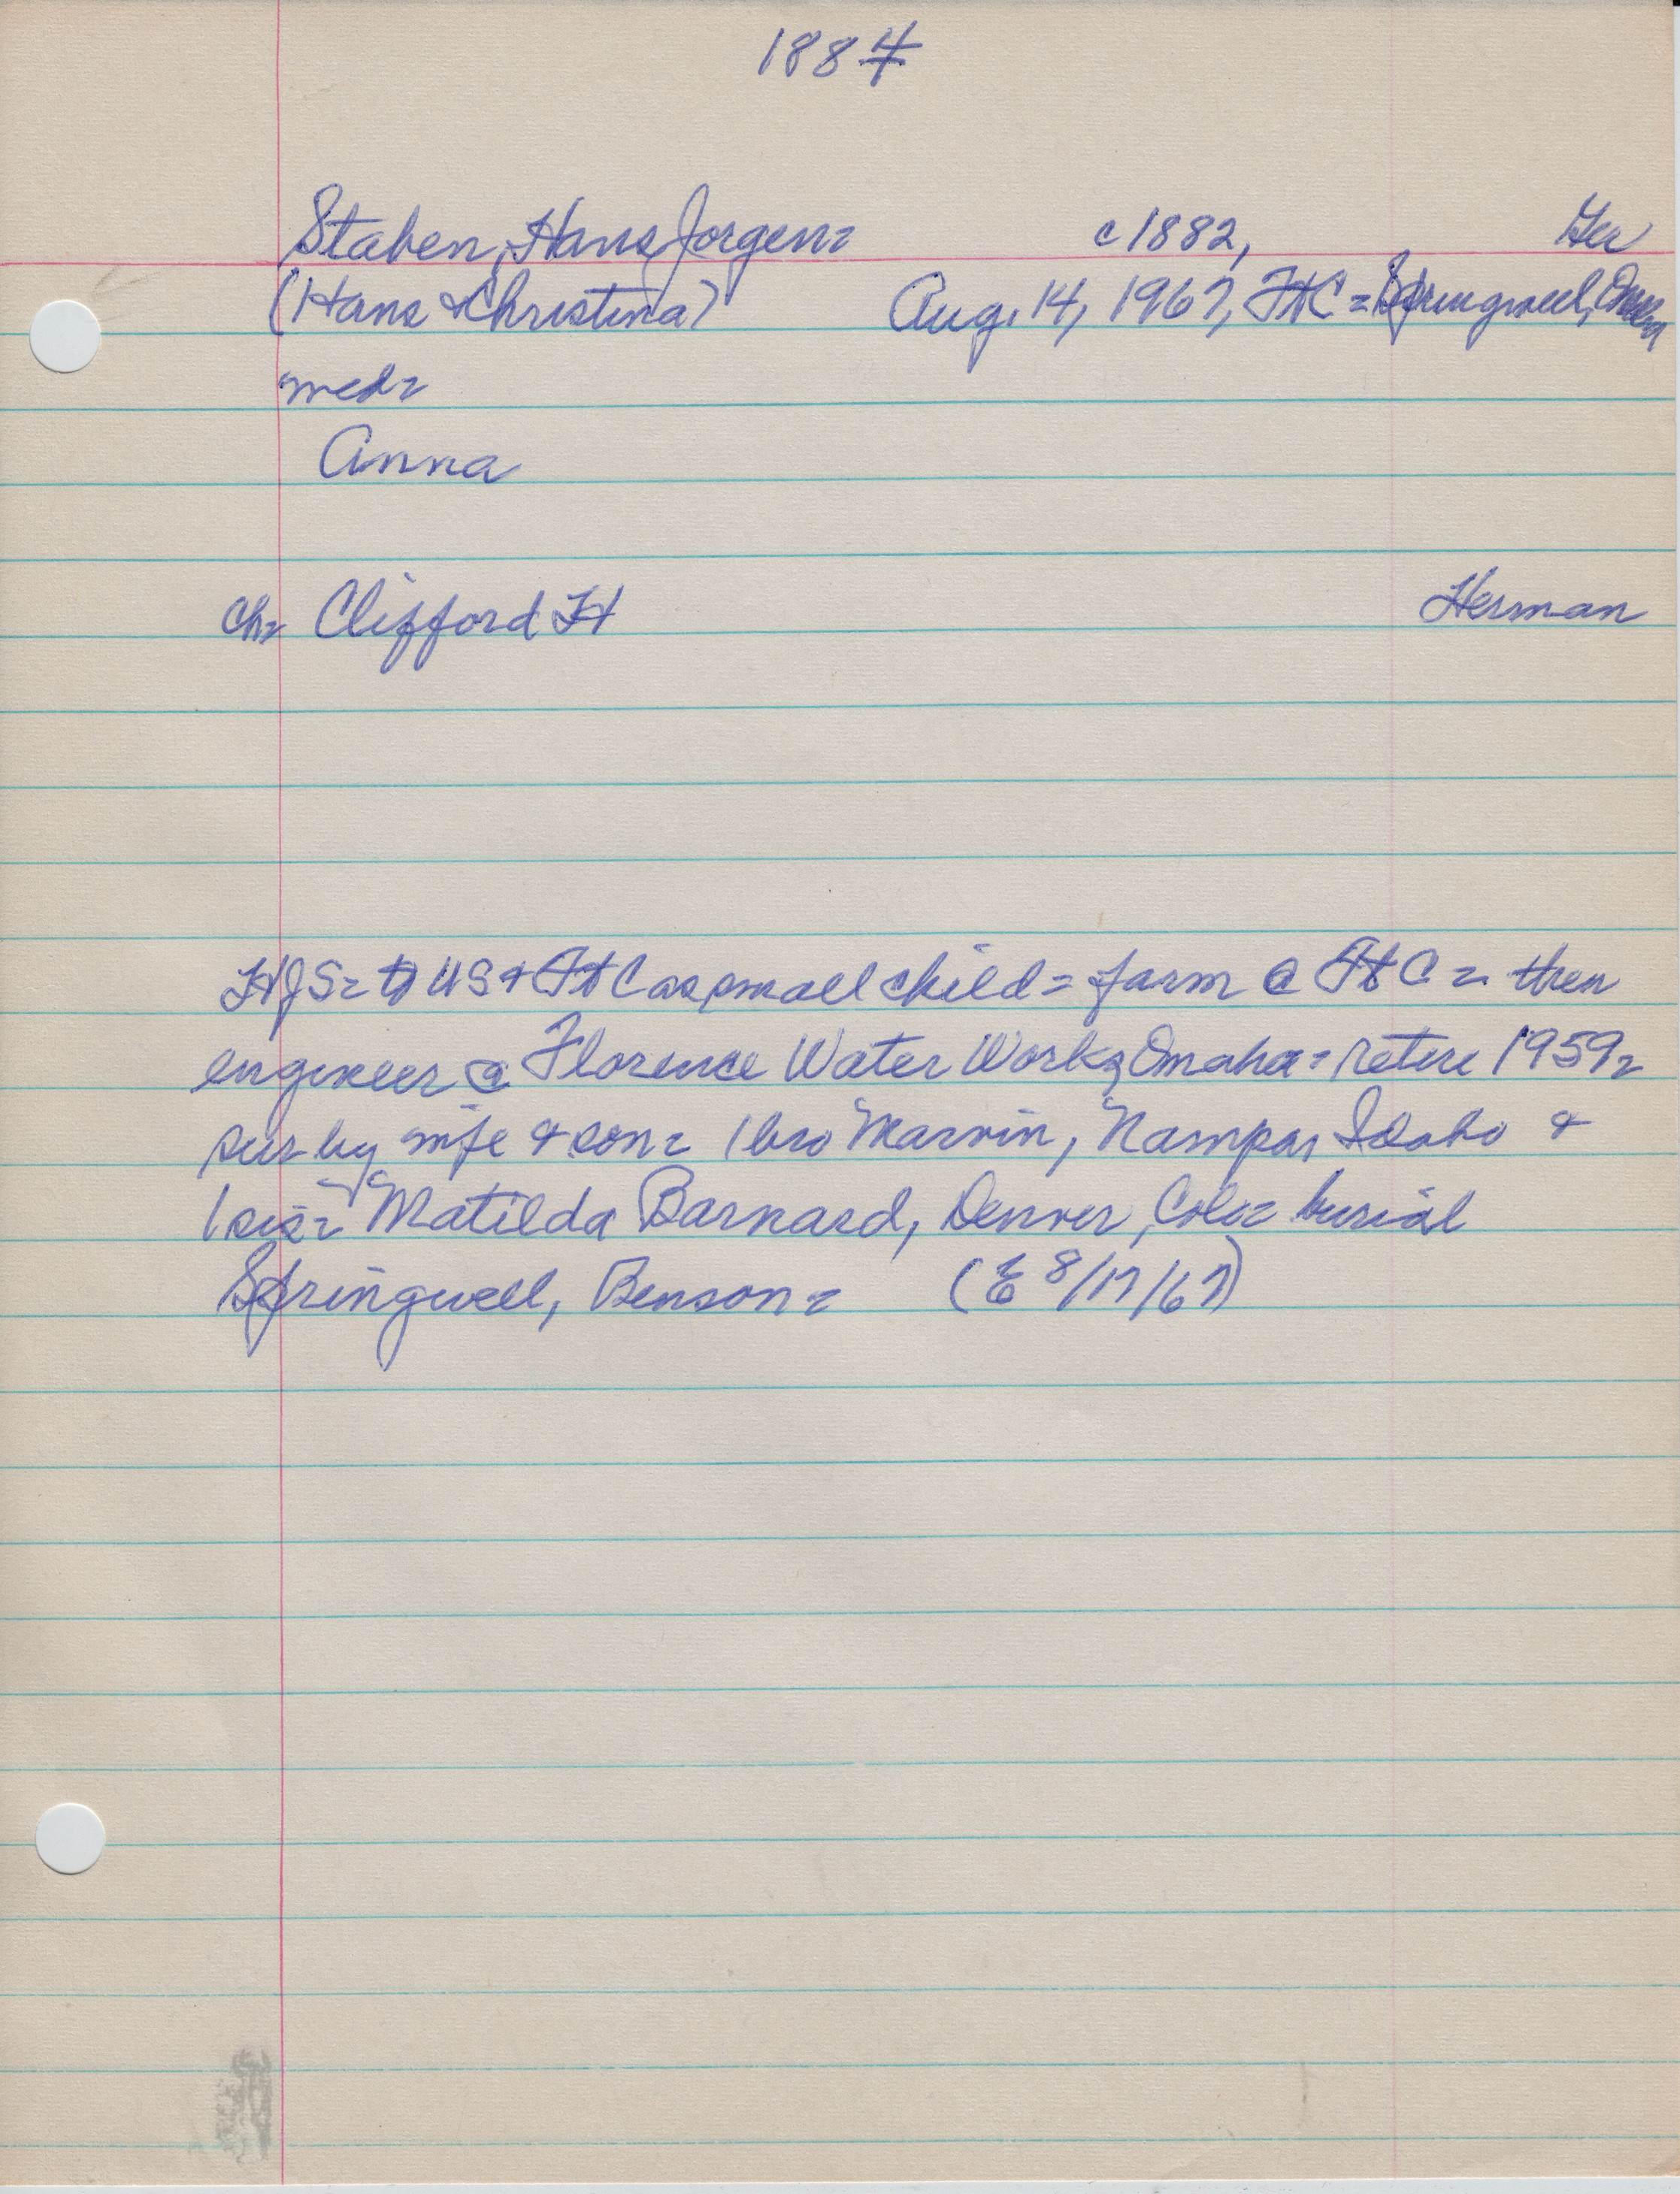 1884
Staben, Hans Jorgen= c1882, Ger
(Hans & Christina) Aug. 14, 1967, FtC = Springwell,
med=
Anna
ch= Clifford H Herman
HJS= to US & FtC as small child = farm @ FtC = then
engineer @ Florence Water Works Omaha = retire 1959=
sur by wife & son= 1 bro Marvin, Nampa, Idaho &
1 sis= Matilda Barnard, Denver, Colo= burial
Springwell, Benson= (E 8/17/67)